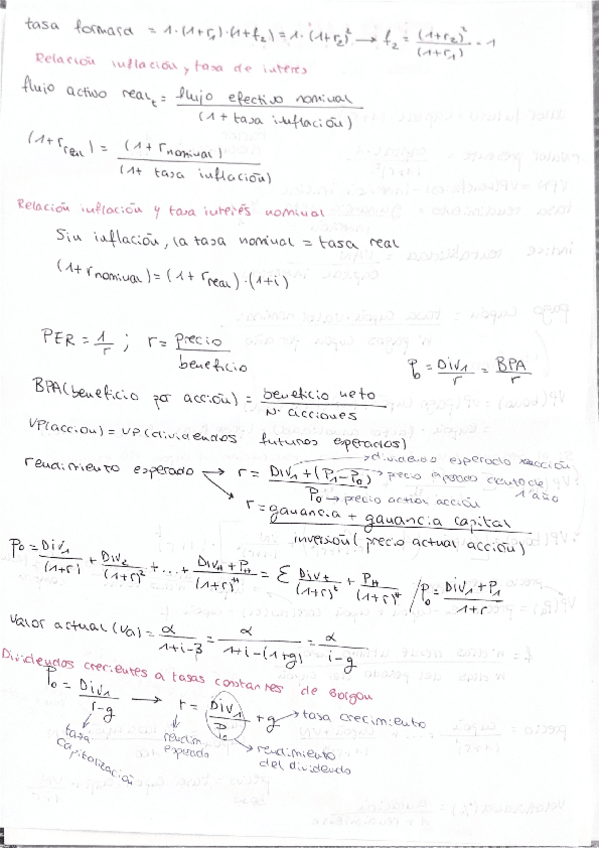 tasa forward = 1·(1+r₁)·(1+f₂) = 1·(1+r₂)² → f₂ = (1+r₂)²/(1+r₁) - 1
Relación inflación y tasa de interés
flujo activo realₜ = flujo efectivo nominal/(1 + tasa inflación)
(1+r real) = (1+r nominal)/(1+ tasa inflación)
Relación inflación y tasa interés nominal
Sin inflación, la tasa nominal = tasa real
(1+r nominal) = (1+r real)·(1+i)
PER = 1/r ; r = precio/beneficio
P₀ = Div₁/r = BPA/r
BPA (beneficio por acción) = beneficio neto/Nº acciones
VP(accion) = VP(dividendos futuros esperados)
rendimiento esperado → r = Div₁ + (P₁-P₀)/P₀
→ dividendo esperado acción
→ precio esperado dentro de 1 año
→ precio actual acción
r = ganancia + ganancia capital/inversión (precio actual acción)
P₀ = Div₁/(1+r) + Div₂/(1+r)² + ... + Div_H + P_H/(1+r)^H = Σ Div_t/(1+r)^t + P_H/(1+r)^H / P₀ = Div₁+P₁/1+r
Valor actual (Va) = α/1+i-3 = α/1+i-(1+g) = α/i-g
Dividendos crecientes a tasas constantes de Gorgon
P₀ = Div₁/r-g → r = Div₁/P₀ + g → tasa crecimiento
tasa capitalización
rendim esperado
rendimiento del dividendo